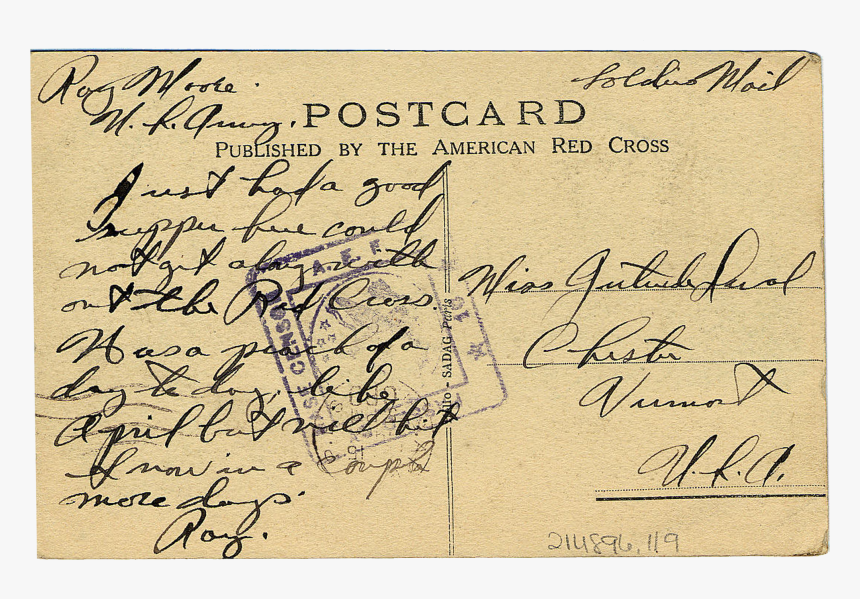 Ray Moore.
U. S. Army.
Soldiers Mail
POSTCARD
PUBLISHED BY THE AMERICAN RED CROSS
Just had a good
supper here could
not git along with
out the Red Cross.
Was a peach of a
day to day, like
April but will hit
snow in a couple
more days.
Ray.
A. E. F.
BASE CENSOR
SADAG Paris
Miss Gertrude
Chester
Vermont
U. S. A.
214896.119